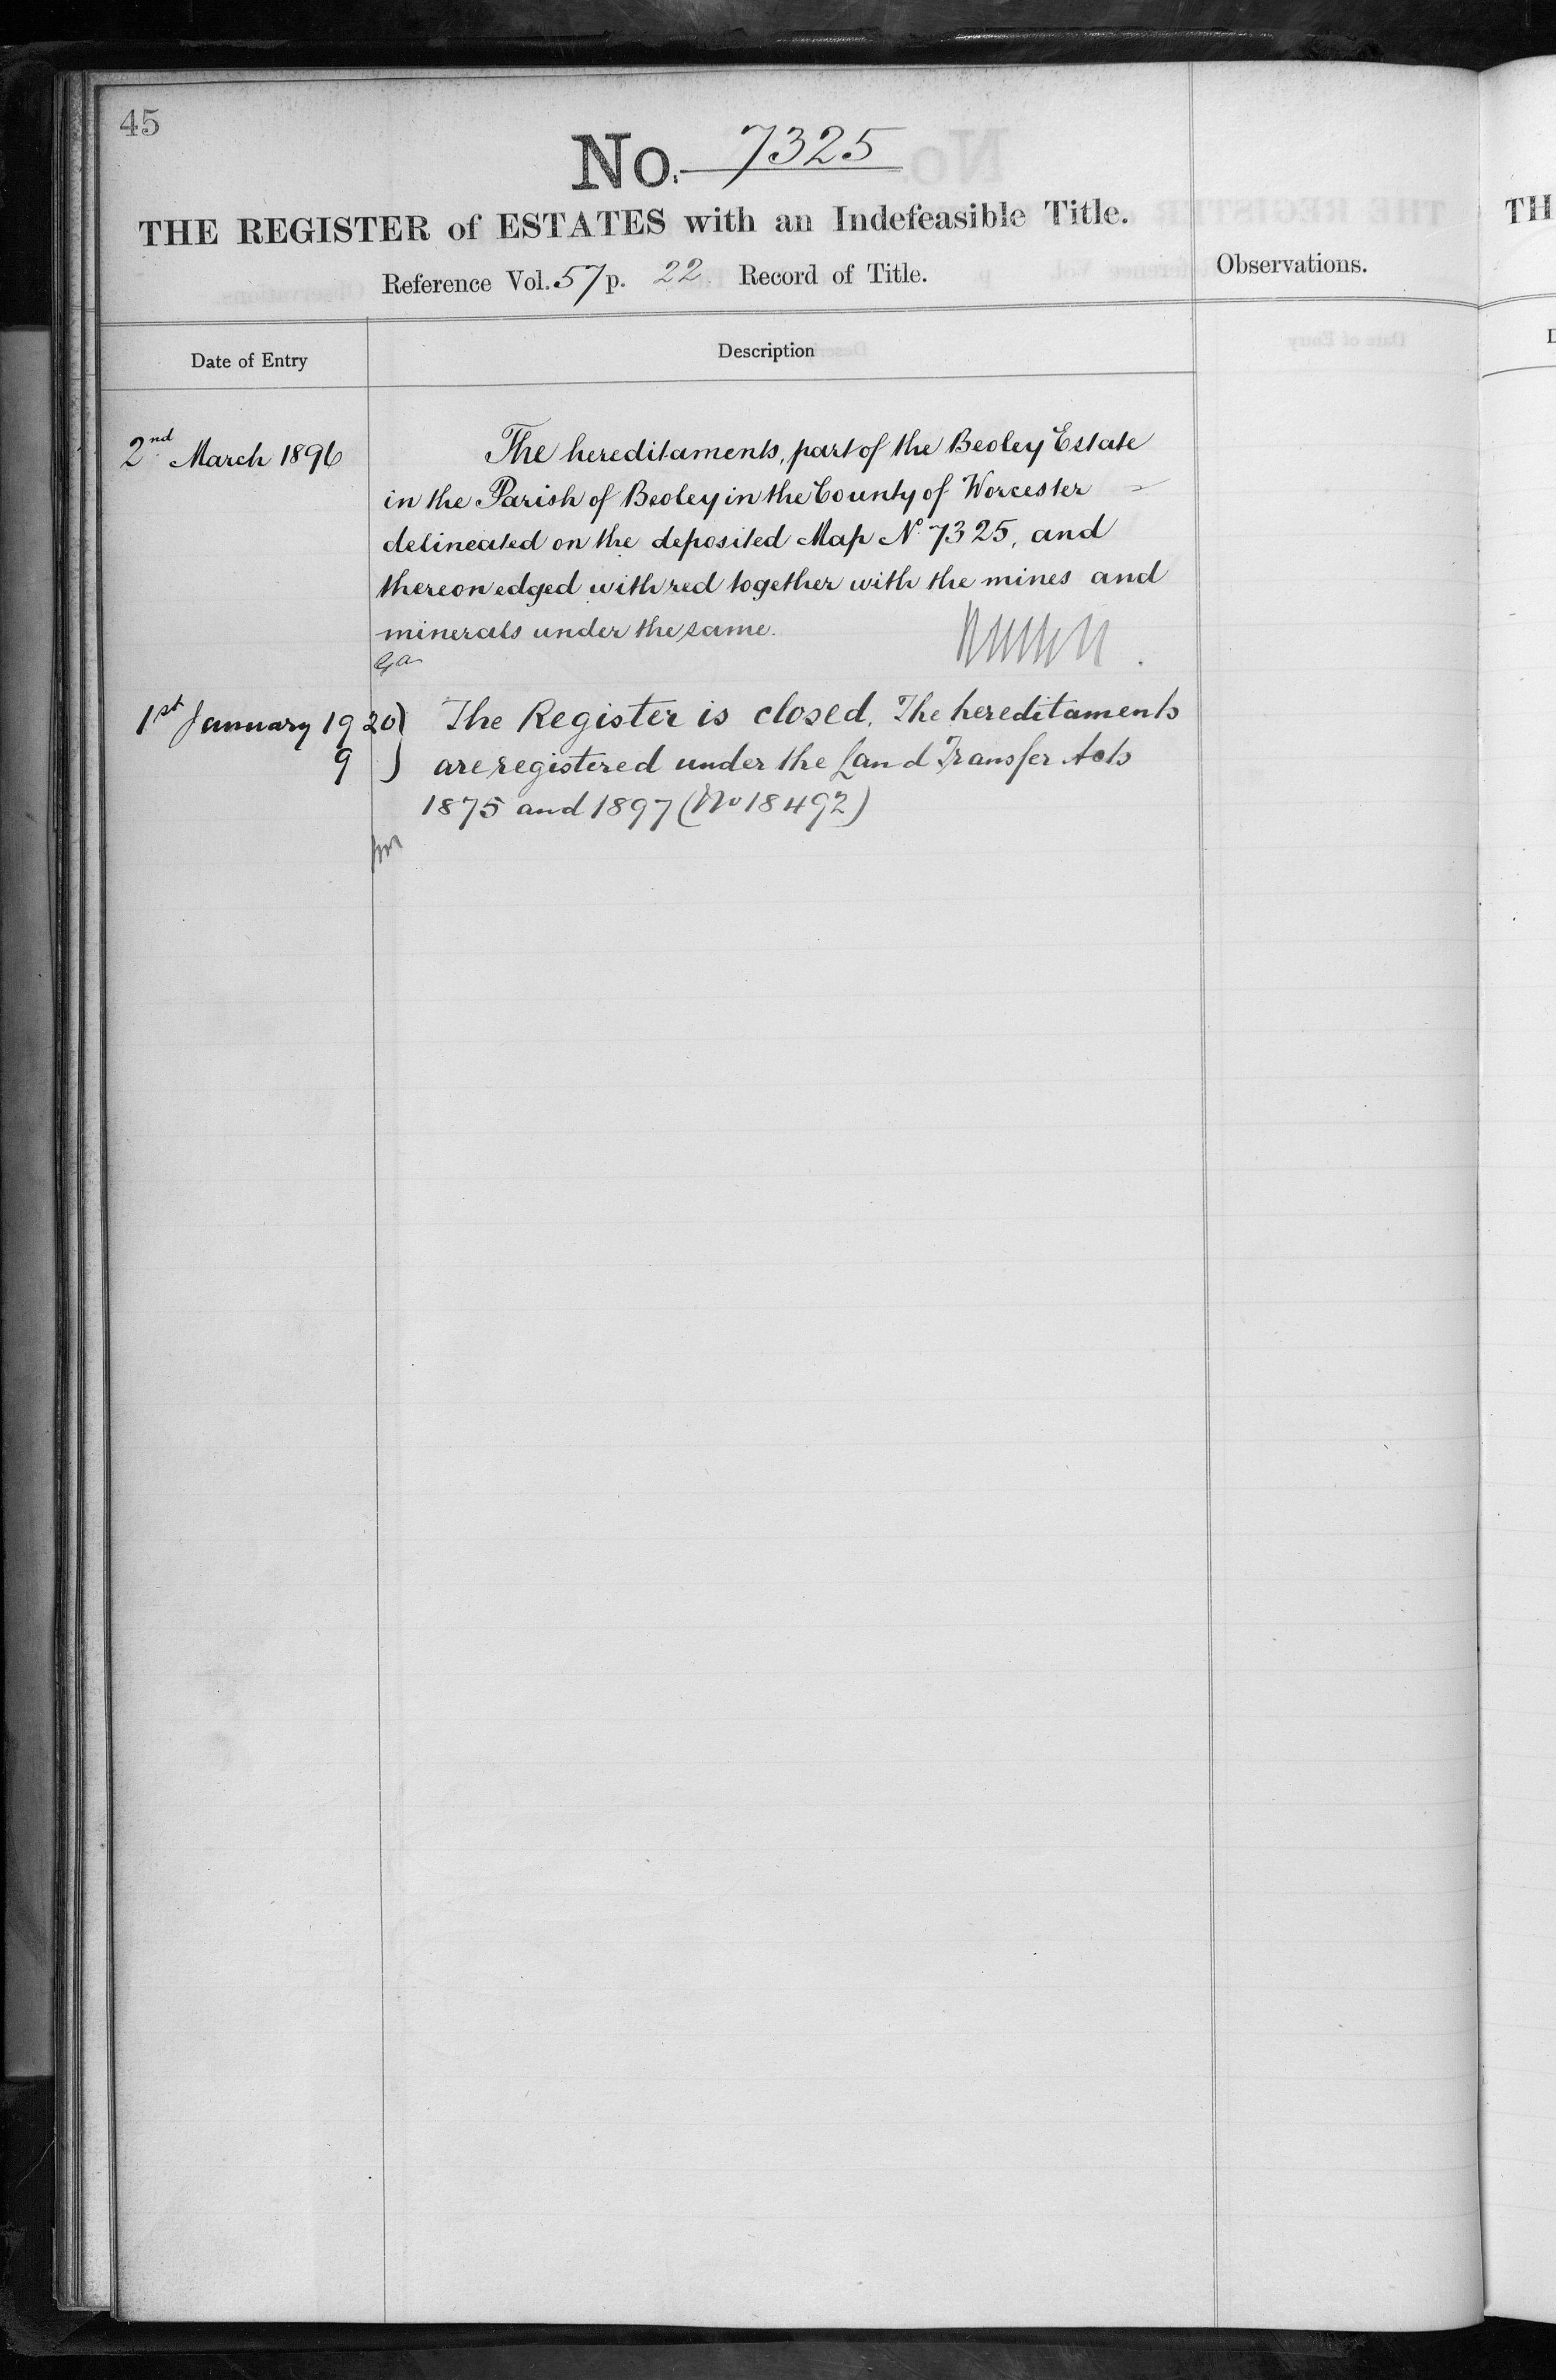 45
No. 7325
THE REGISTER of ESTATES with an Indefeasible Title.
Reference Vol. 57 p. 22 Record of Title.
Observations.
TH
Date of Entry
Description
2nd March 1896
The hereditaments, part of the Beoley Estate
in the Parish of Beoley in the County of Worcester
delineated on the deposited Map No 7325, and
thereon edged with red together with the mines and
minerals under the same.
1st January 1920
9
The Register is closed. The hereditaments
are registered under the Land Transfer Acts
1875 and 1897 (No 18492)